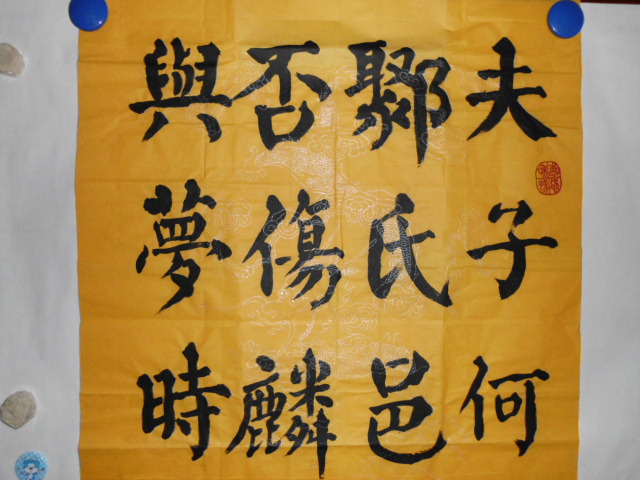 夫子何
鄹氏邑
否傷麟
與夢時